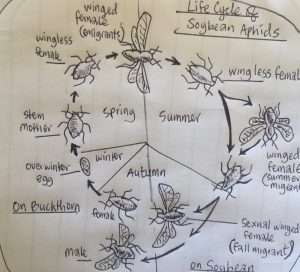 Life Cycle of
Soybean Aphids
winged
female
(emigrants)
wingless
female
wingless female
stem
mother
spring
Summer
winged
female
(summer
migrant)
over winter
egg
winter
Autumn
on Buckthorn
female
male
Sexual winged
female
(Fall migrant)
on Soybean